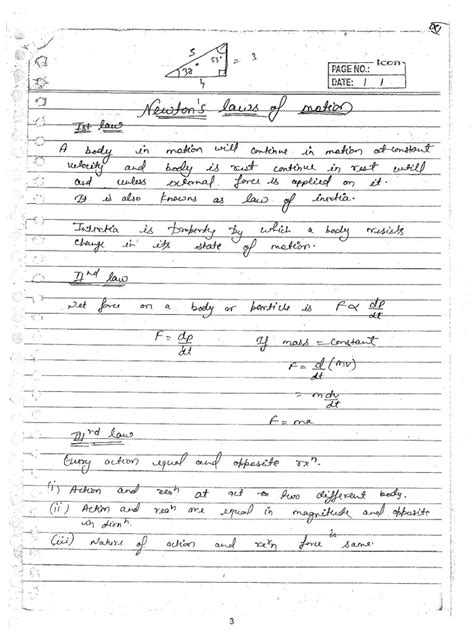 5 53° = 3
37°
4
Icon
PAGE NO.:
DATE: / /
Newton's laws of motion
Ist law
A body in motion will continue in motion at constant
velocity and body is rest continue in rest untill
and unless external force is applied on it.
It is also known as law of inertia.
Inertia is property by which a body resists
change in its state of motion.
IInd law
Net force on a body or particle is F ∝ dp/dt
F = dp/dt If mass = constant
F = d/dt (mv)
= m dv/dt
F = ma
IIIrd law
Every action equal and opposite rxn.
(i) Action and rexn at act to two different body.
(ii) Action and rexn are equal in magnitude and opposite
in dirn.
(iii) Nature of action and rexn force is same.
3